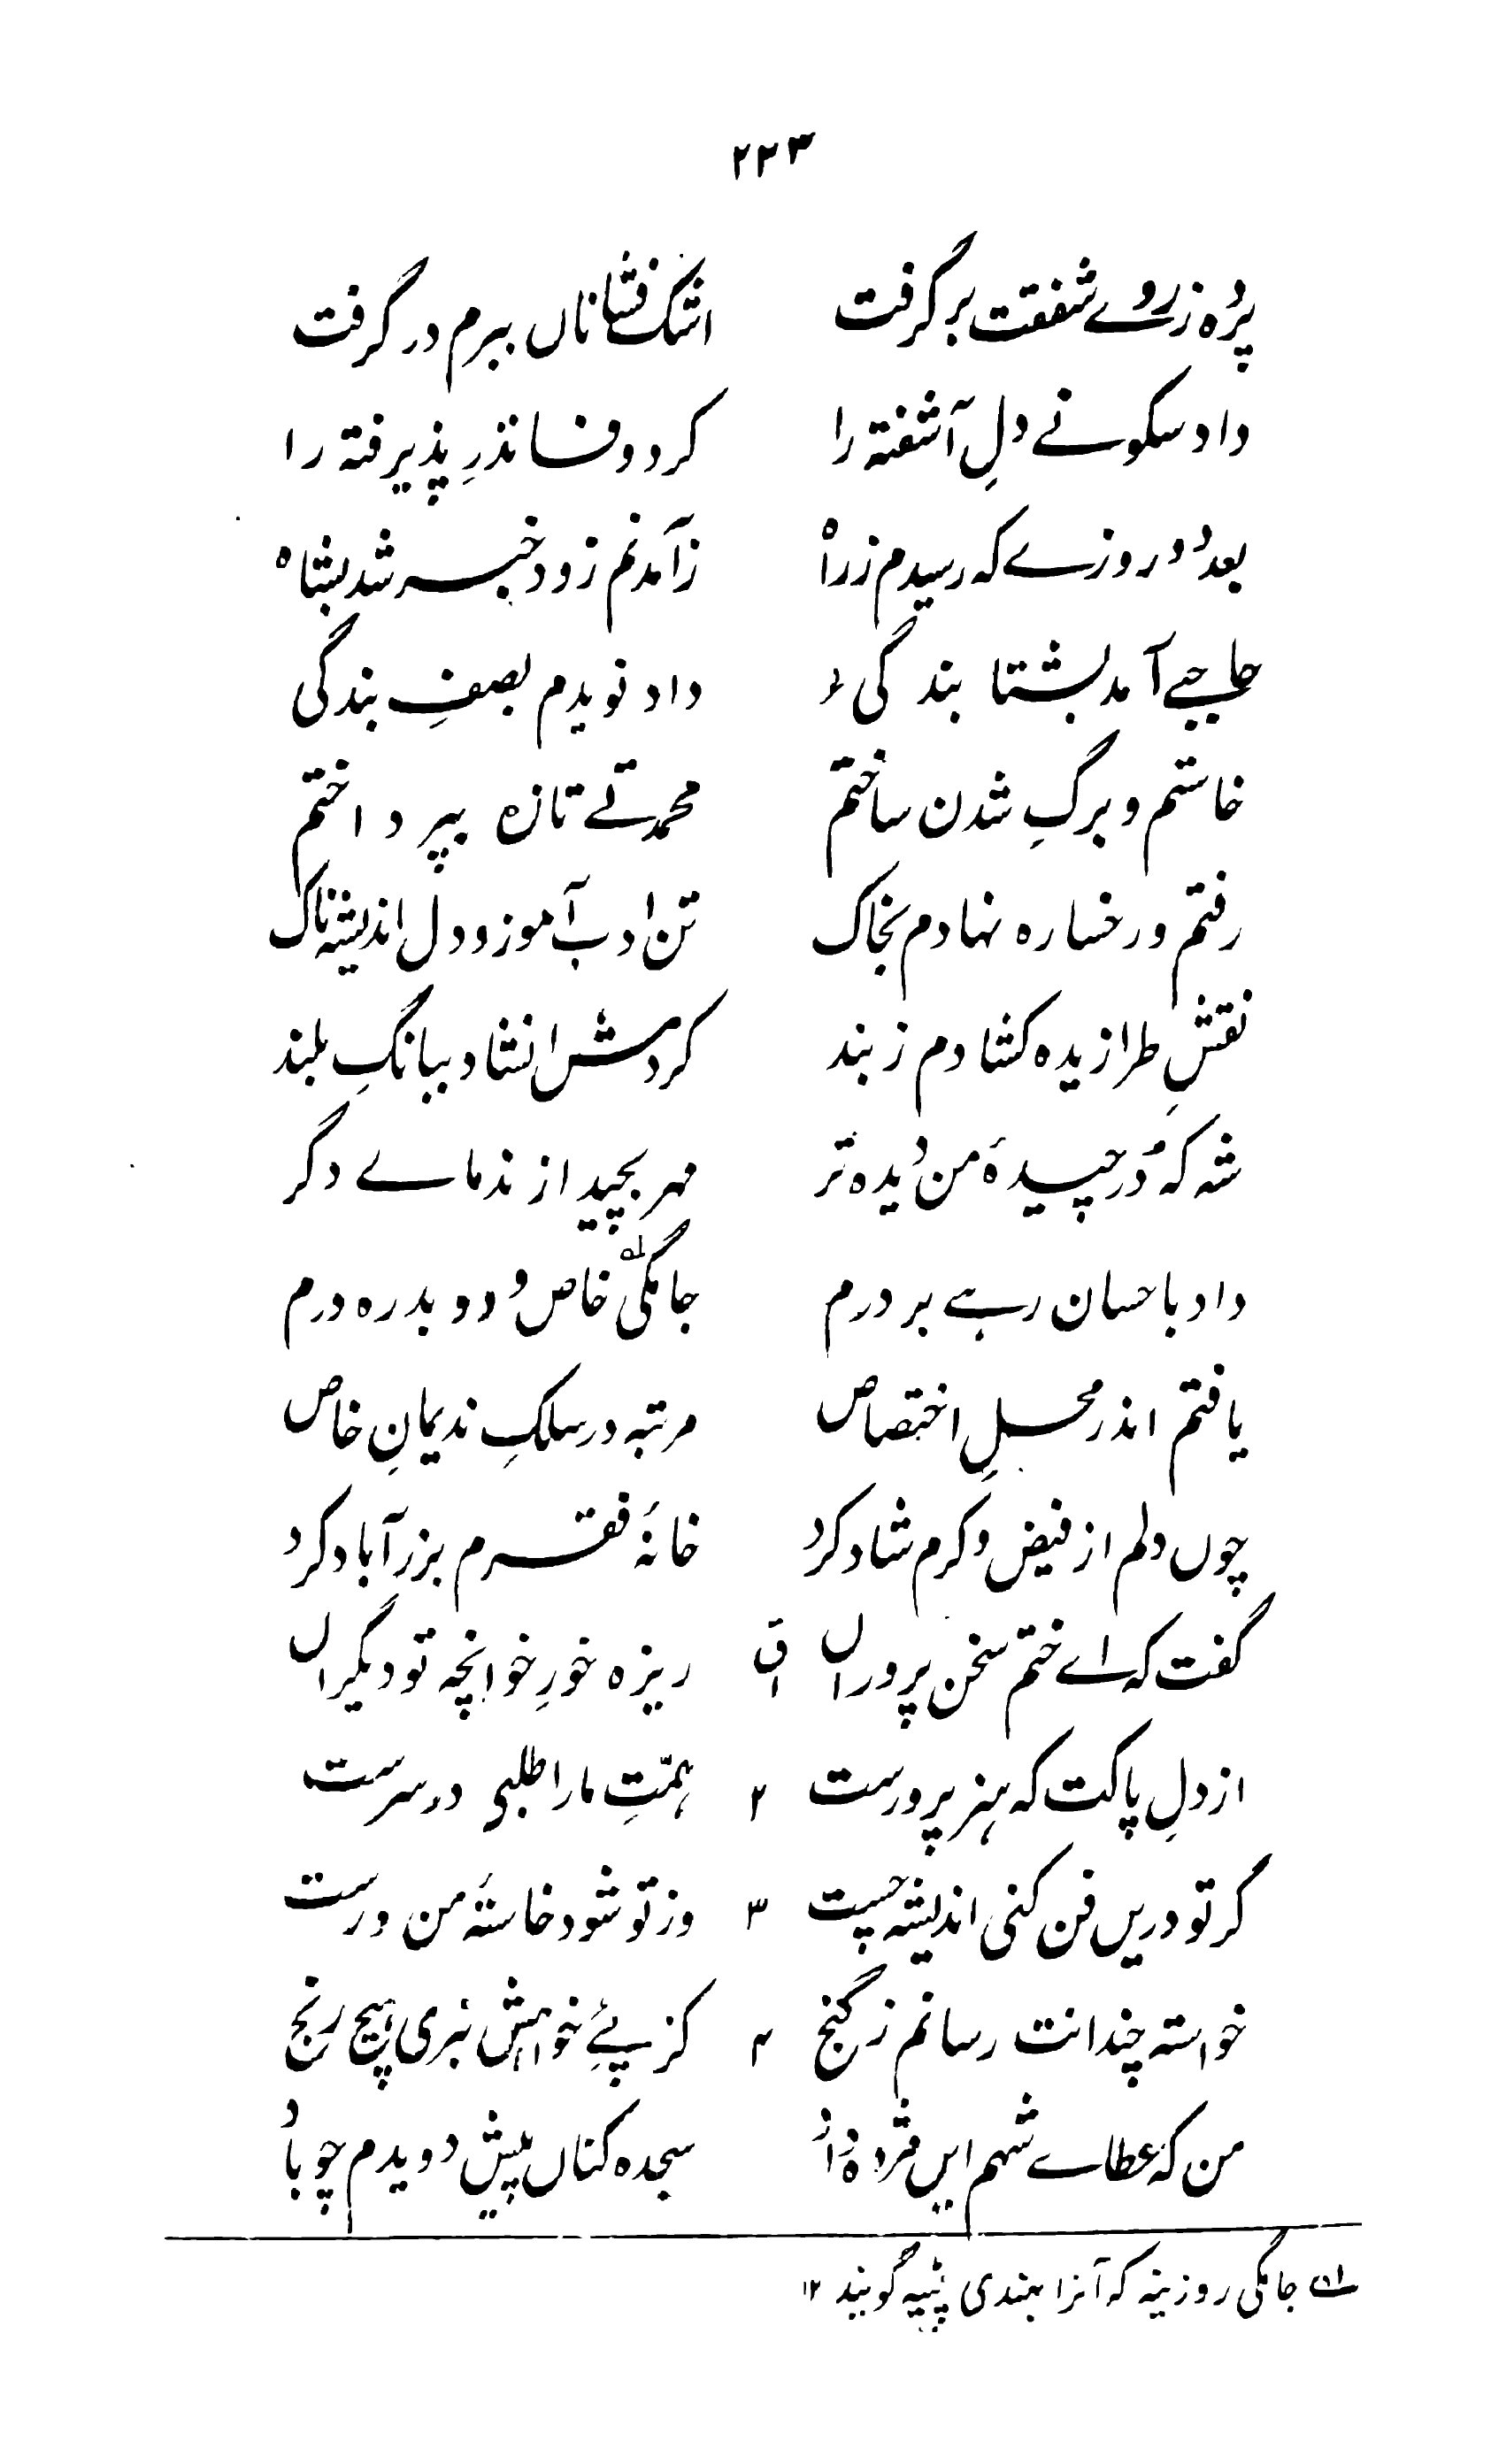 ۲۲۳
پردہ ز روے شفقت بر گرفت اشک فشاناں ببرم در گرفت
داد سکونے دلِ آشفتہ را کرد وفا نذرِ پذیرفتہ را
بعد دو روزے کہ رسیدم ز راہ زآمدنم زود خبر شد بشاہ
حاجبے آمد بشتابندگی داد نویدم بصفِ بندگی
خاستم و برگِ شدن ساختم محمدتے تازہ بپرداختم
رفتم و رخسارہ نہادم بخاک تن ادب آموز و دل اندیشہ ناک
نقشِ طرازیدہ کشادم ز بند کردمش انشاد ببانگِ بلند
شہ کہ دُرِ چیدۂ من دید تر مہر بچید از ندماے دگر
داد باحسان رہے بر درم جامگی خاص و دو بدرہ درم
یافتم اندر محلِ اختصاص مرتبہ در سلکِ ندیمانِ خاص
چوں دلم از فیض و کرم شاد کرد خانۂ فقرم بزر آباد کرد
گفت کہ اے ختم سخن پروراں ق ۱ ریزہ خورِ خوانچہ تو دیگراں
از دلِ پاکت کہ ہنر پرورست ۲ ہمّتِ ما را طلبی در سرست
گر تو دریں فن کنی اندیشہ چست ۳ وز تو شود خاستۂ من درست
خواستہ چندانت رسانم ز گنج ۴ کز پئے خواہش نبری ہیچ رنج
من کہ عطاے شہم ایں مژدہ داد سجدہ کناں پیش دویدم چو باد
لہ جامگی روزینہ کہ آنرا بہندی پٹیہ گویند ۱۲